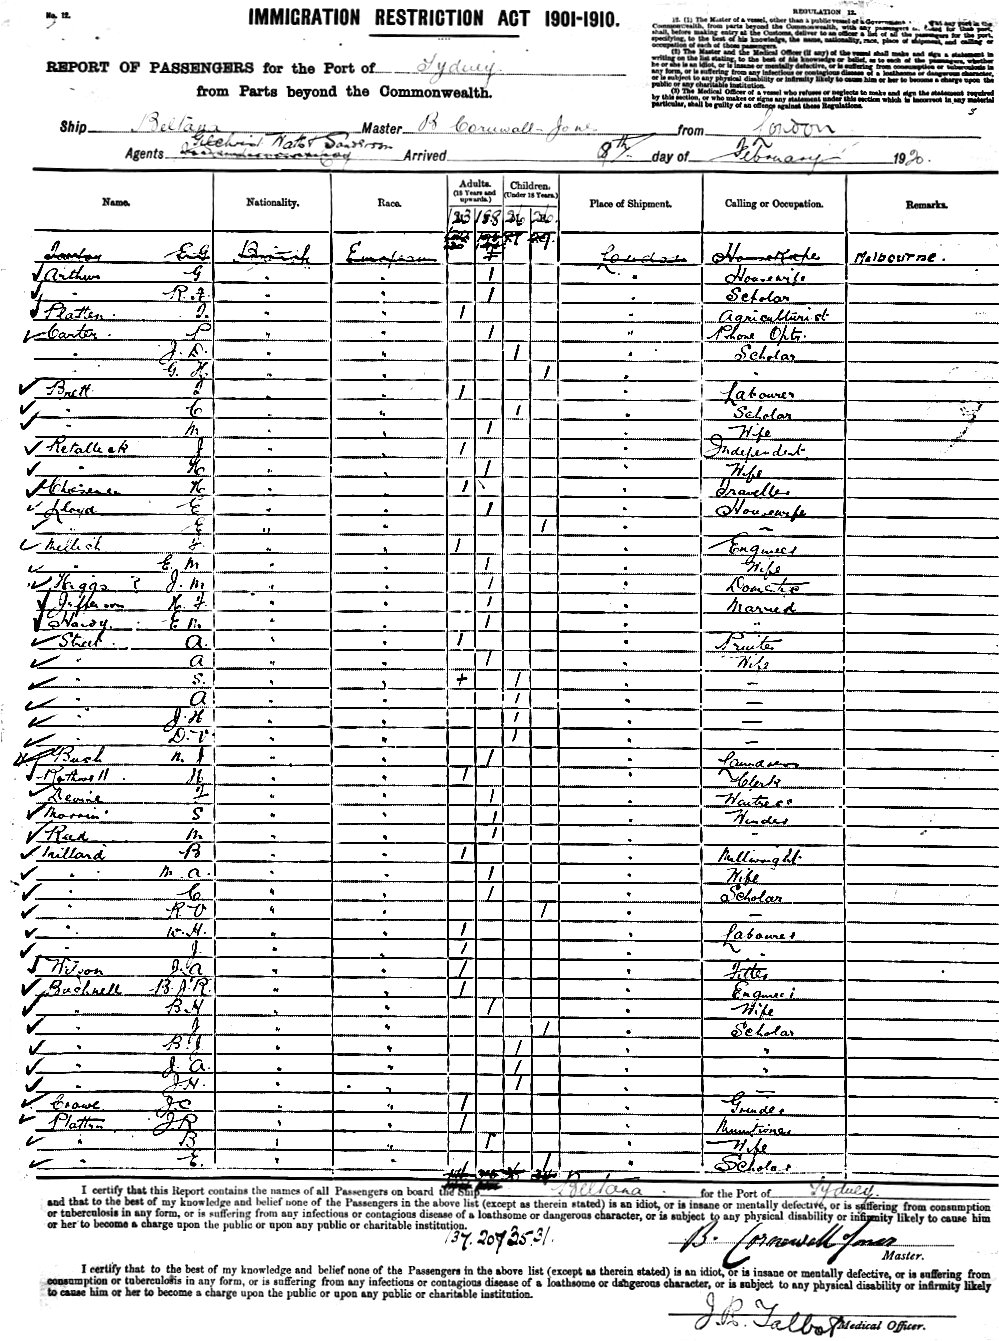 No. 12.
IMMIGRATION RESTRICTION ACT 1901-1910.
REGULATION 12.
12. (1) The Master of a vessel, other than a public vessel of a Government
Commonwealth, from parts beyond the Commonwealth, with any passengers
shall, before making entry at the Customs, deliver to an officer a list of all the passengers for the port,
specifying, to the best of his knowledge, the name, nationality, race, place of shipment, and calling or
occupation of each of those passengers.
(2) The Master and the Medical Officer (if any) of the vessel shall make and sign a statement in
writing on the list stating, to the best of his knowledge or belief, as to each of the passengers, whether
he or she is an idiot, or is insane or mentally defective, or is suffering from consumption or tuberculosis in
any form, or is suffering from any infectious or contagious disease of a loathsome or dangerous character,
or is subject to any physical disability likely to cause him or her to become a charge upon the
public or any public or charitable institution.
(3) The Medical Officer of a vessel who refuses or neglects to make and sign the statement required
by this section, or who makes or signs any statement under this section which is incorrect in any material
particular, shall be guilty of an offence against these Regulations.
REPORT OF PASSENGERS for the Port of Sydney
from Parts beyond the Commonwealth.
Ship Beltana Master B Cornwall-Jones from London
Agents Gilchrist Watt Sanderson Arrived 8th day of February 1920.
Name. Nationality. Race. Adults. (15 Years and upwards.) Children. (Under 15 Years.) Place of Shipment. Calling or Occupation. Remarks.
E G British European London Melbourne.
Arthur G " " 1 " Housewife
" R. F. " " 1 " Scholar
Platten " " 1 " Agriculturist
Carter P " " 1 " Phone Optr.
" J. D. " " 1 Scholar
" G. H. " " 1 "
Brett " " 1 " Labourer
" C " " 1 " Scholar
" M " " 1 " Wife
Retallick J " " 1 " Independent
" " " 1 " Wife
H " " 1 " Traveller
Lloyd E " " 1 " Housewife
" E " " 1 " —
Mellish F " " 1 " Engineer
" E. M " " 1 " Wife
Higgs ? J. M " " 1 " Domestic
Jefferson H. F " " 1 " Married
Hardy E M. " " 1 " "
Street A. " " 1 " Printer
" A " " 1 " Wife
" S. " " + 1 " —
" A " " 1 " —
" J. H " " 1 " —
" D. V " " 1 " —
Bush M. J " " 1 " Laundress
Rothwell H " " 1 " Clerk
Devine " " 1 " Waitress
Morris S " " 1 " Winder
Read M " " 1 " "
Millard B " " 1 " Millwright
" M. A. " " 1 " Wife
" C " " 1 " Scholar
" R V " " 1 " —
" W. H. " " 1 " Labourer
" J. " " 1 " "
Wilson J. A " " 1 " Fitter
Bucknell B. J. R. " " 1 " Engineer
" B. H " " 1 " Wife
" J " " 1 " Scholar
" B. J " " 1 " "
" J. A. " " 1 " "
" J. H. " " 1 " —
Crowe J. C. " " 1 " Grinder
Platten J. R " " 1 " Munitioner
" B " " 1 " Wife
" E. " " " Scholar
I certify that this Report contains the names of all Passengers on board the Ship Beltana for the Port of Sydney
and that to the best of my knowledge and belief none of the Passengers in the above list (except as therein stated) is an idiot, or is insane or mentally defective, or is suffering from consumption
or tuberculosis in any form, or is suffering from any infectious or contagious disease of a loathsome or dangerous character, or is subject to any physical disability or infirmity likely to cause him
or her to become a charge upon the public or upon any public or charitable institution.
137. 207 35 31.
B. Cornewall Jones
Master.
I certify that to the best of my knowledge and belief none of the Passengers in the above list (except as therein stated) is an idiot, or is insane or mentally defective, or is suffering from
consumption or tuberculosis in any form, or is suffering from any infectious or contagious disease of a loathsome or dangerous character, or is subject to any physical disability or infirmity likely
to cause him or her to become a charge upon the public or upon any public or charitable institution.
J. B. Talbot
Medical Officer.